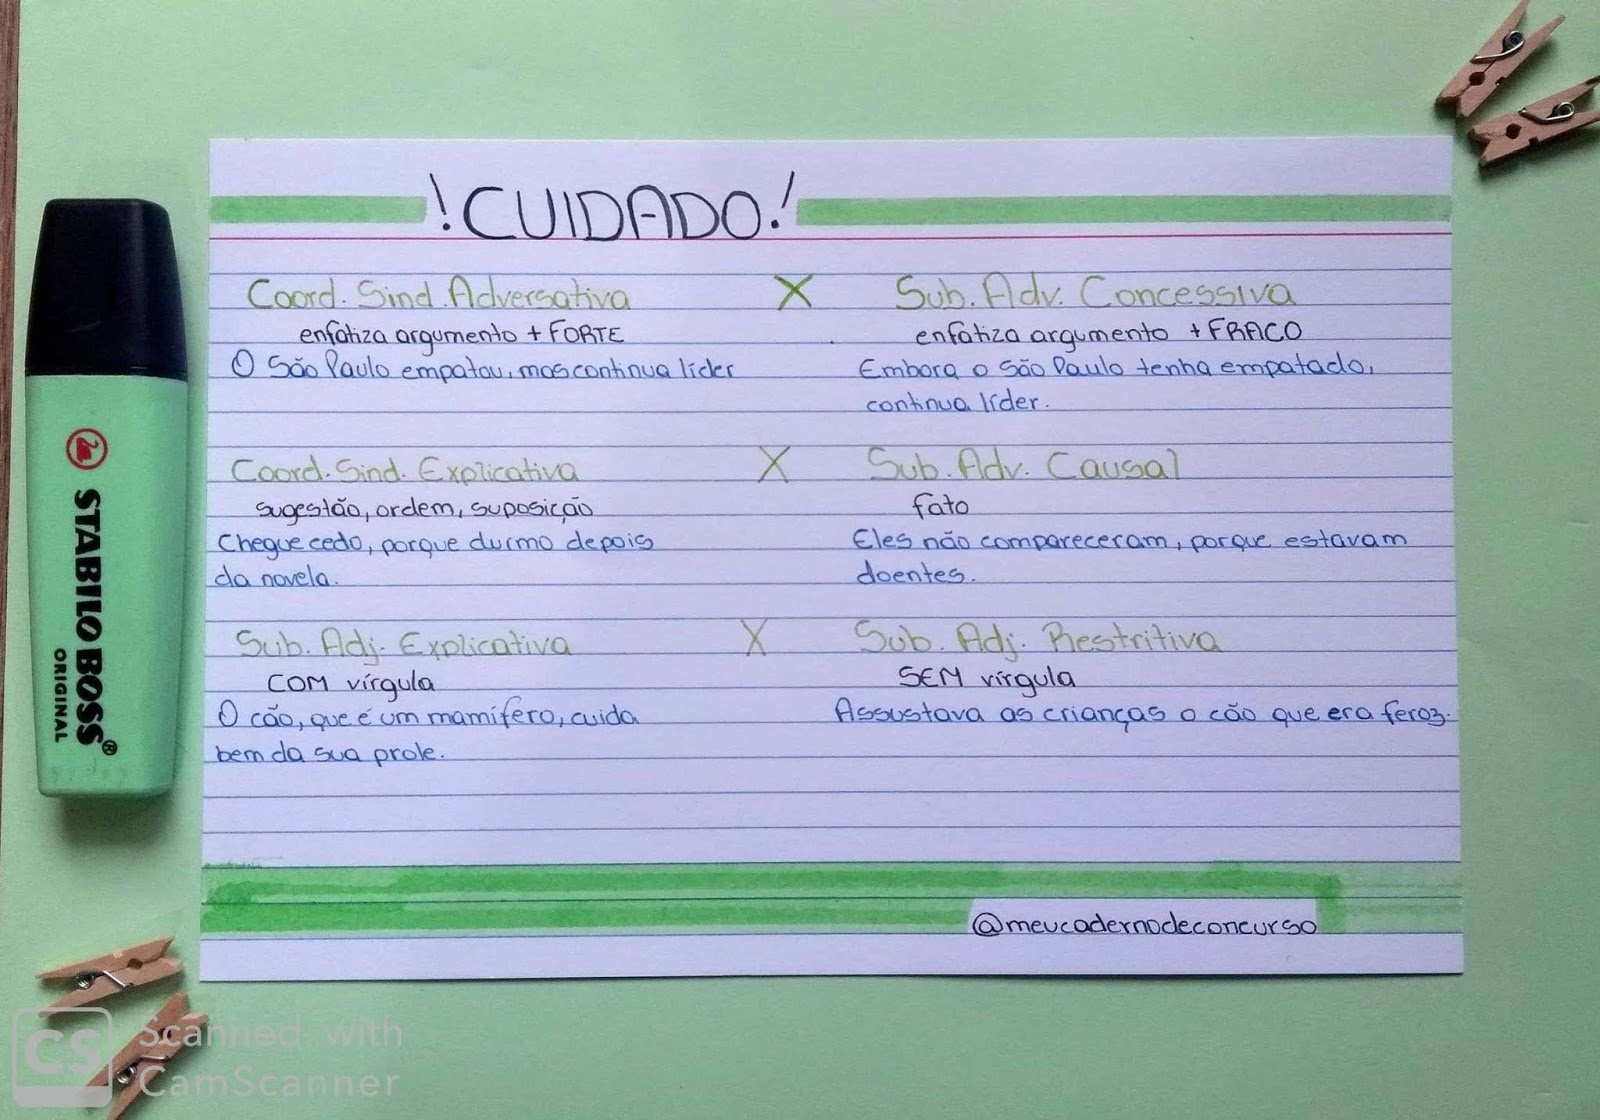 !CUIDADO!
Coord. Sind. Adversativa X Sub. Adv. Concessiva
enfatiza argumento + FORTE
enfatiza argumento + FRACO
O São Paulo empatou, mas continua líder
Embora o São Paulo tenha empatado,
continua líder.
Coord. Sind. Explicativa X Sub. Adv. Causal
sugestão, ordem, suposição
fato
Chegue cedo, porque durmo depois
da novela.
Eles não compareceram, porque estavam
doentes.
Sub. Adj. Explicativa X Sub. Adj. Restritiva
COM vírgula
SEM vírgula
O cão, que é um mamífero, cuida
bem da sua prole.
Assustava as crianças o cão que era feroz.
@meucadernodeconcurso
STABILO BOSS®
ORIGINAL
CS
Scanned with
CamScanner